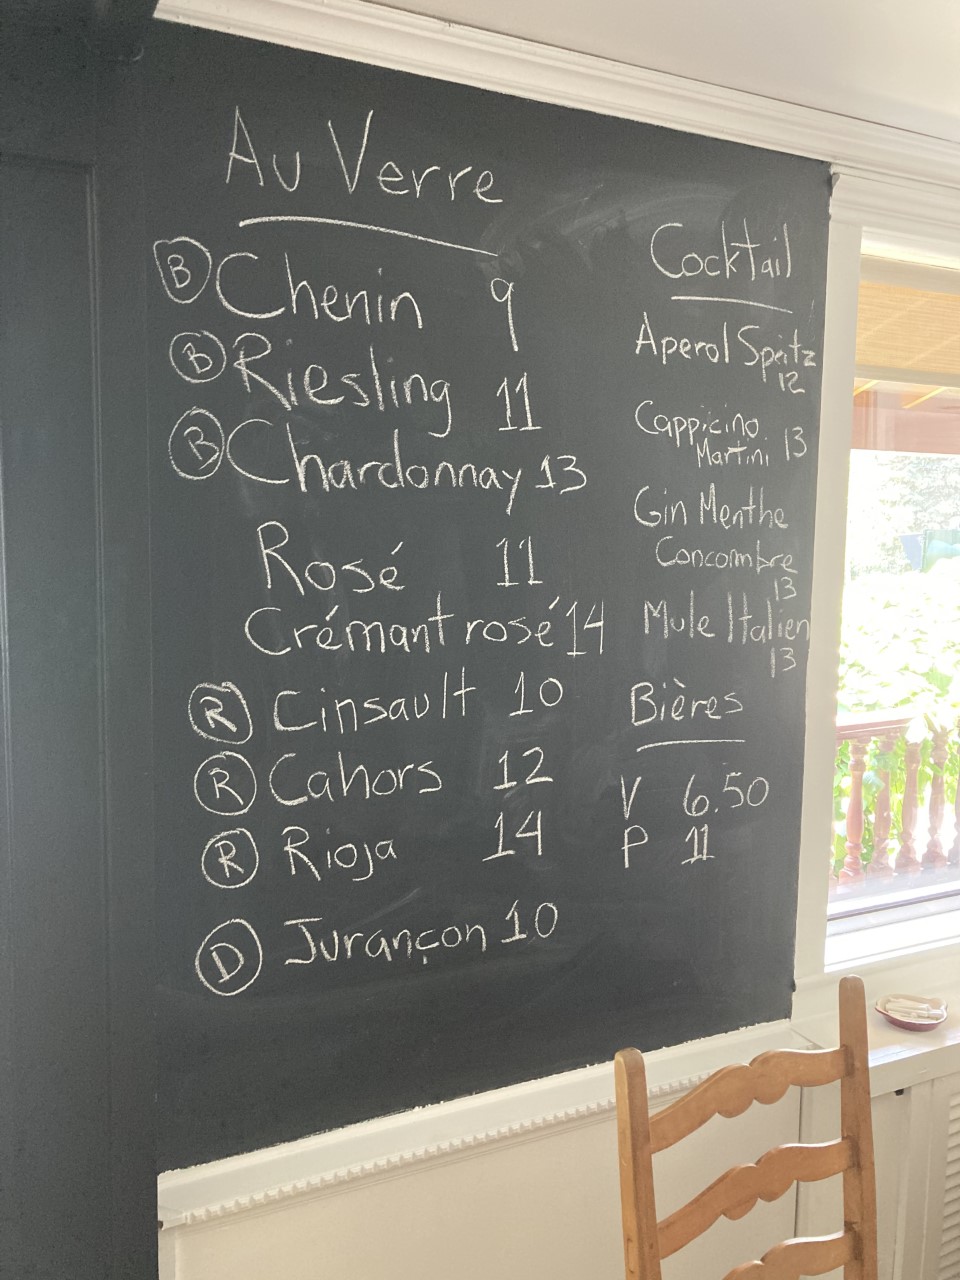 Au Verre
B Chenin 9
B Riesling 11
B Chardonnay 13
Rosé 11
Crémant rosé 14
R Cinsault 10
R Cahors 12
R Rioja 14
D Jurançon 10
Cocktail
Aperol Spritz
12
Cappicino
Martini 13
Gin Menthe
Concombre
13
Mule Italien
13
Bières
V 6.50
P 11